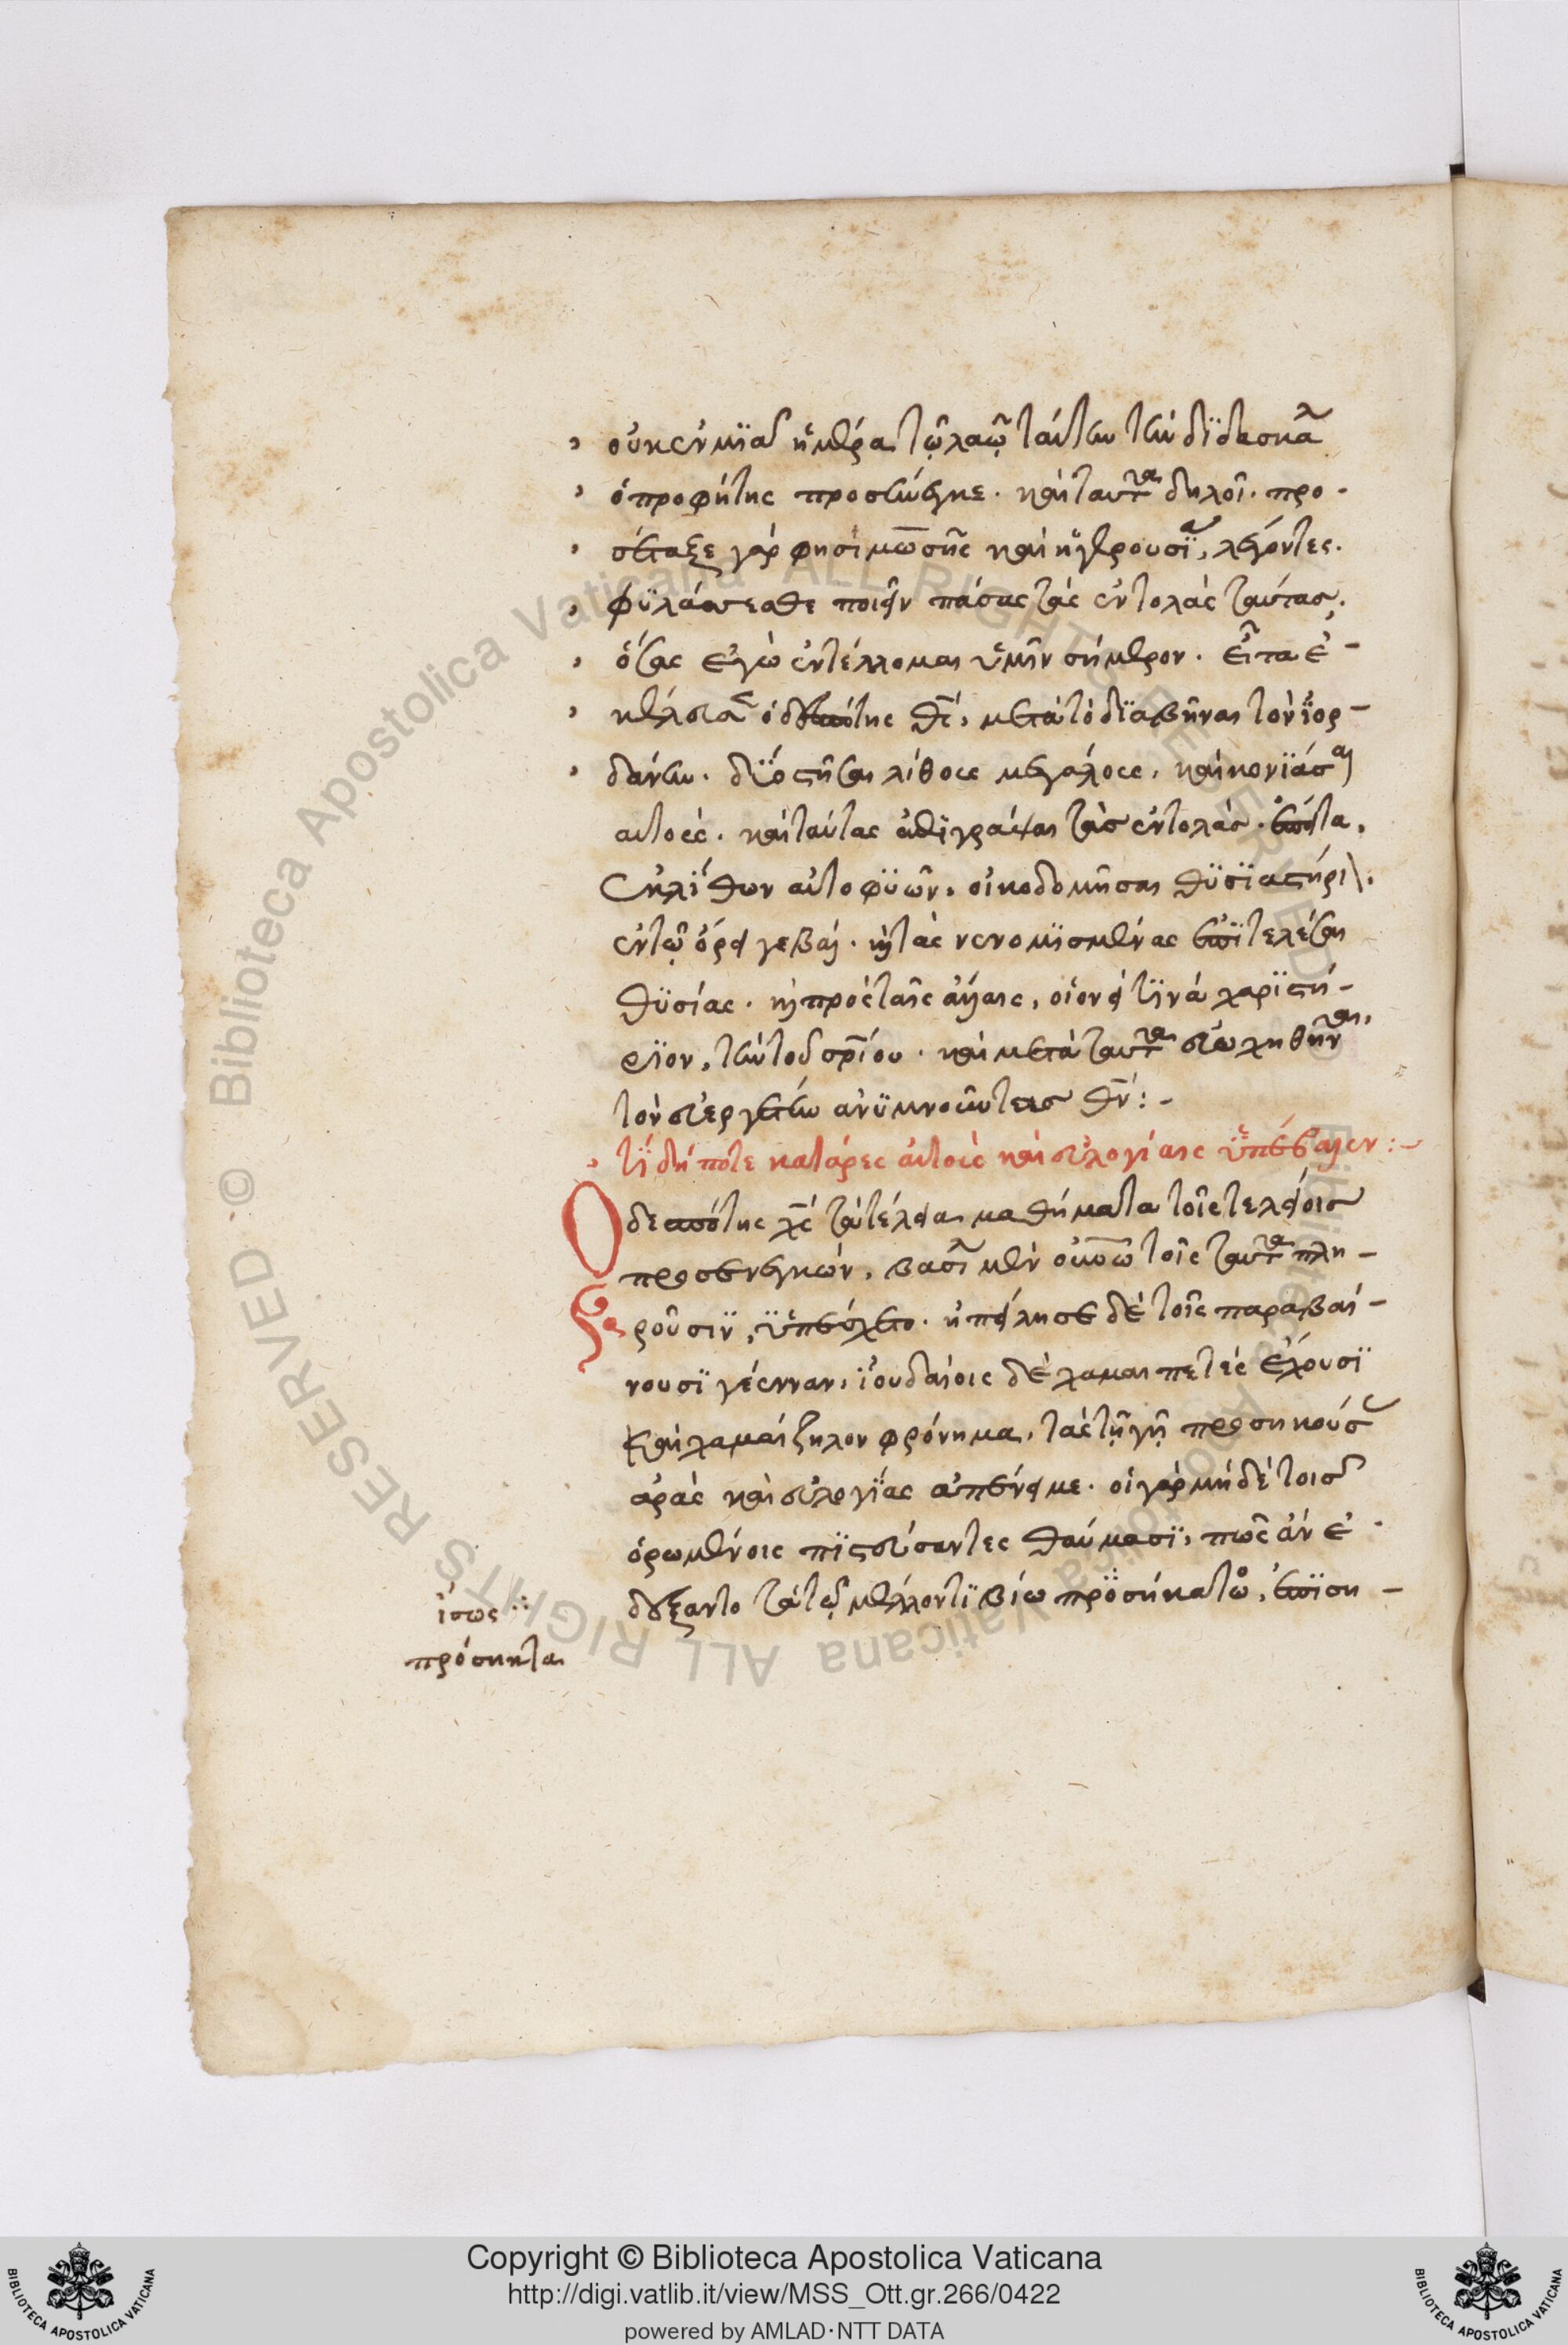 οὐκ ἐν μϊᾶ ἡμέρα τῷ λαῷ ταύτην τὴν δϊδασκαλ
ὁ προφήτης προσενήνεγκε. καὶ ταῦτα δηλοῖ. προ-
σέταξε γάρ φησὶ μωσῆς καὶ ἡ γερουσΐα, λέγοντες.
φϋλάσσεσθε ποιεῖν πάσας τὰς ἐντολὰς ταύτας,
ὅσας ἐγὼ ἐντέλλομαι ὑμῖν σήμερον. εἶτα ἐ-
κέλευσεν ὁ δεσπότης θς, μετὰ τὸ δϊαβῆναι τὸν ϊορ-
δάνην. δϋο στῆσαι λίθους μεγάλους, καὶ κονϊάσαι
αὐτοὺς. καὶ ταύτας ἐπιγράψαι τὰς ἐντολάς. ἔπειτα,
ἐκ λΐθων αὐτοφϋῶν, οἰκοδομῆσαι θϋσϊαστήριον.
ἐν τῷ ὄρει γεβάλ. καὶ τὰς νενομϊσμένας ἐπϊτελέσαι
θϋσίας. καὶ πρὸς ταῖς ἄλλαις, οἱονεὶ τϊνὰ χαρϊστή-
ρϊον, τὴν τοῦ σωτηρίου. καὶ μετὰ ταῦτα εὐωχηθῆναι,
τὸν εὐεργέτην ἀνϋμνοῦντας θν:-
τΐ δήποτε κατάρες αὐτοὺς καὶ εὐλογίαις ὑπέβαλεν:-
Ὁ δεσπότης χς τὰ τέλεια μαθήματα τοῖς τελείοις
προσενεγκών, βασιλ μὲν οὐνῶν τοῖς ταῦτα πλη-
ροῦσιν, ὑπέσχετο. ἠπείλησε δὲ τοῖς παραβαί-
νουσϊ γέενναν, ϊουδαίοις δὲ χαμαιπετὲς ἔχουσϊ
καὶ χαμαίζηλον φρόνημα, τὰς τῇ γῇ προσηκούσας
ἀρὰς καὶ εὐλογΐας ἀπένειμε. οἱ γὰρ μὴ δὲ τοῖς
ὁρωμένοις πϊστεύσαντες θαύμασϊ, πῶς ἂν ἐ-
δέξαντο τὰ τῷ μέλλοντϊ βίω προσήκατο, ἐπϊση-
ἴσως
πρόσηκτα
Copyright © Biblioteca Apostolica Vaticana
http://digi.vatlib.it/view/MSS_Ott.gr.266/0422
powered by AMLAD·NTT DATA